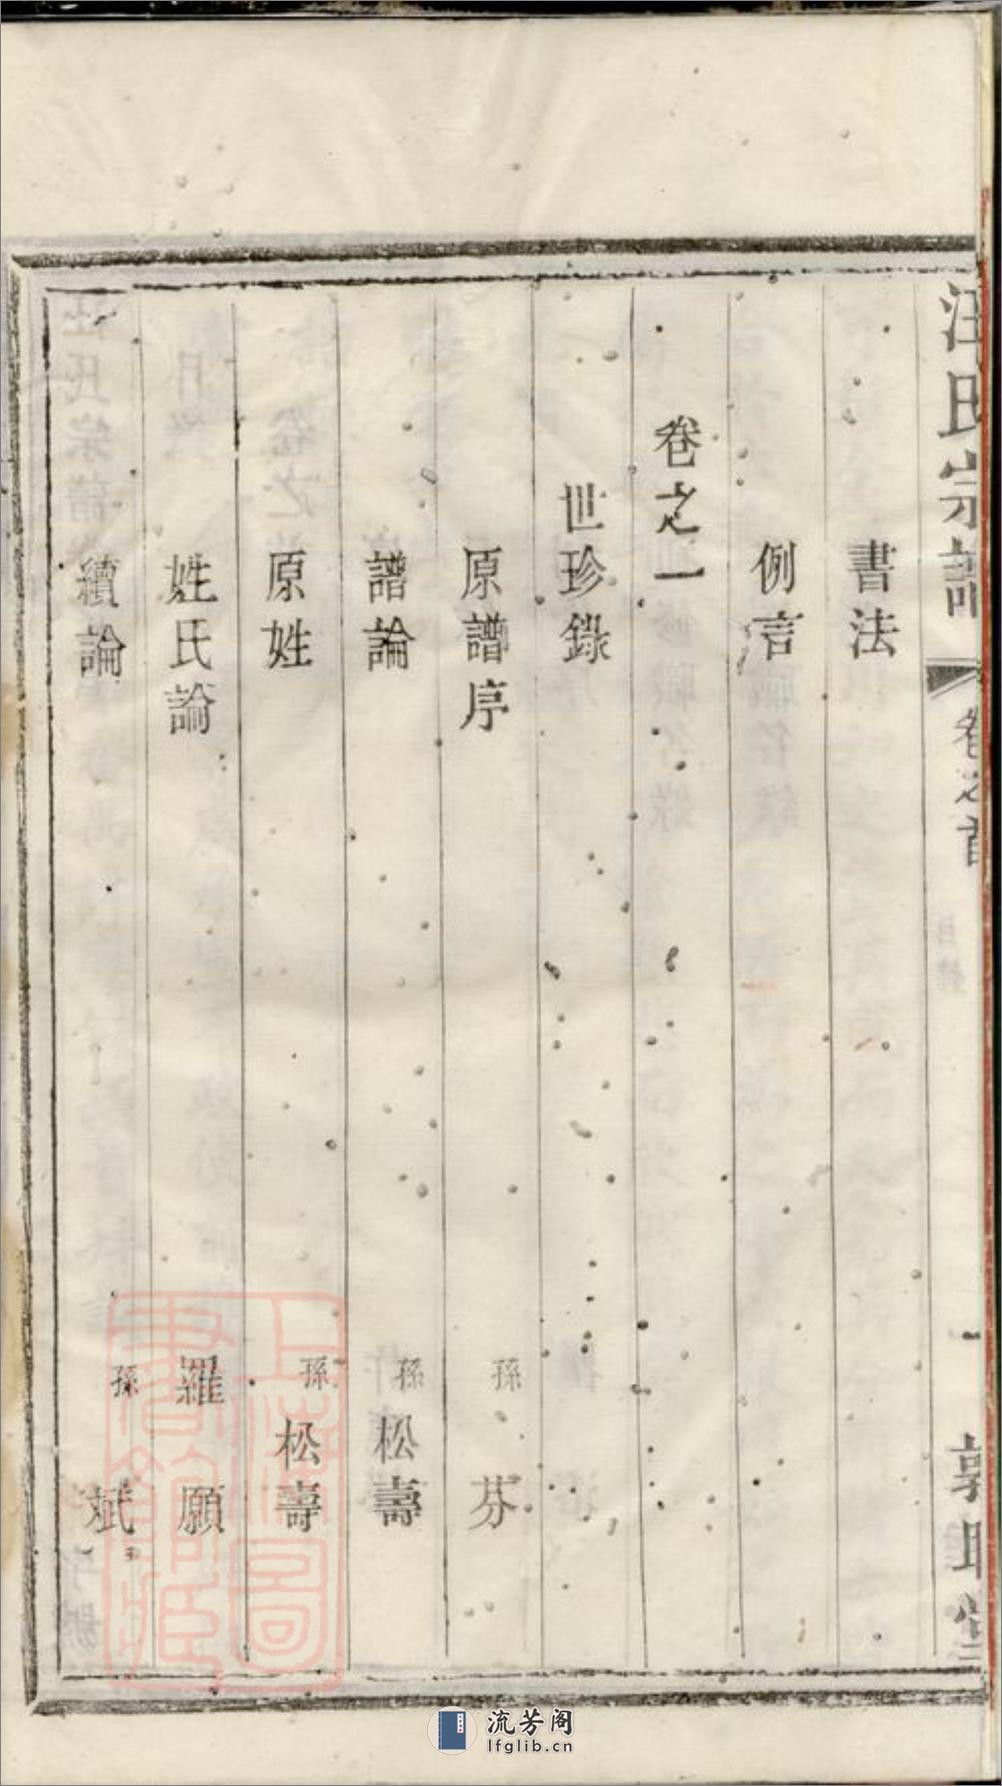 汪氏宗譜
卷之首
目錄
一
敦睦堂
書法
例言
卷之一
世珍錄
原譜序 孫 芬
譜論 孫 松壽
原姓 孫 松壽
姓氏論 羅願
續論 孫 斌
上海圖書館藏
流芳阁
lfglib.cn